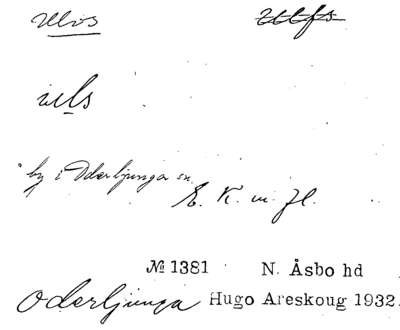 Ulvs Ulfs
uls
by i Oderljunga sn.
E. K. m. fl.
№ 1381 N. Åsbo hd
Oderljunga Hugo Areskoug 1932